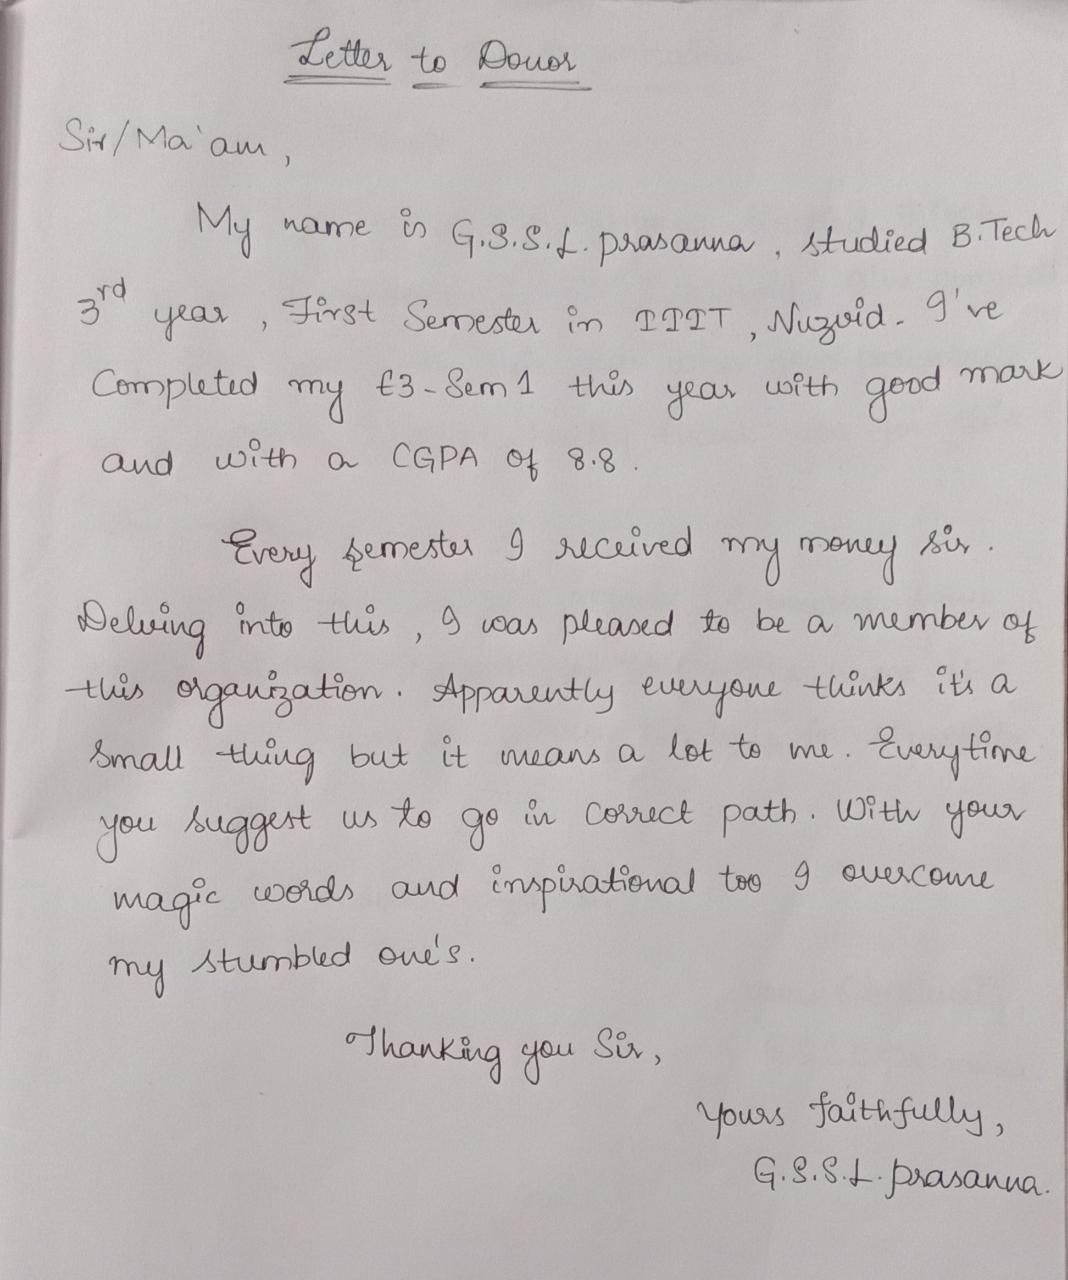 Letter to Donor
Sir/Ma'am,
My name is G.S.S.L. prasanna, studied B.Tech
3rd year, First Semester in IIIT, Nuzvid. I've
Completed my E3-Sem 1 this year with good mark
and with a CGPA of 8.8.
Every semester I received my money sir.
Delving into this, I was pleased to be a member of
this organization. Apparently everyone thinks it's a
small thing but it means a lot to me. Everytime
you suggest us to go in correct path. With your
magic words and inspirational too I overcome
my stumbled one's.
Thanking you Sir,
Yours faithfully,
G.S.S.L. prasanna.